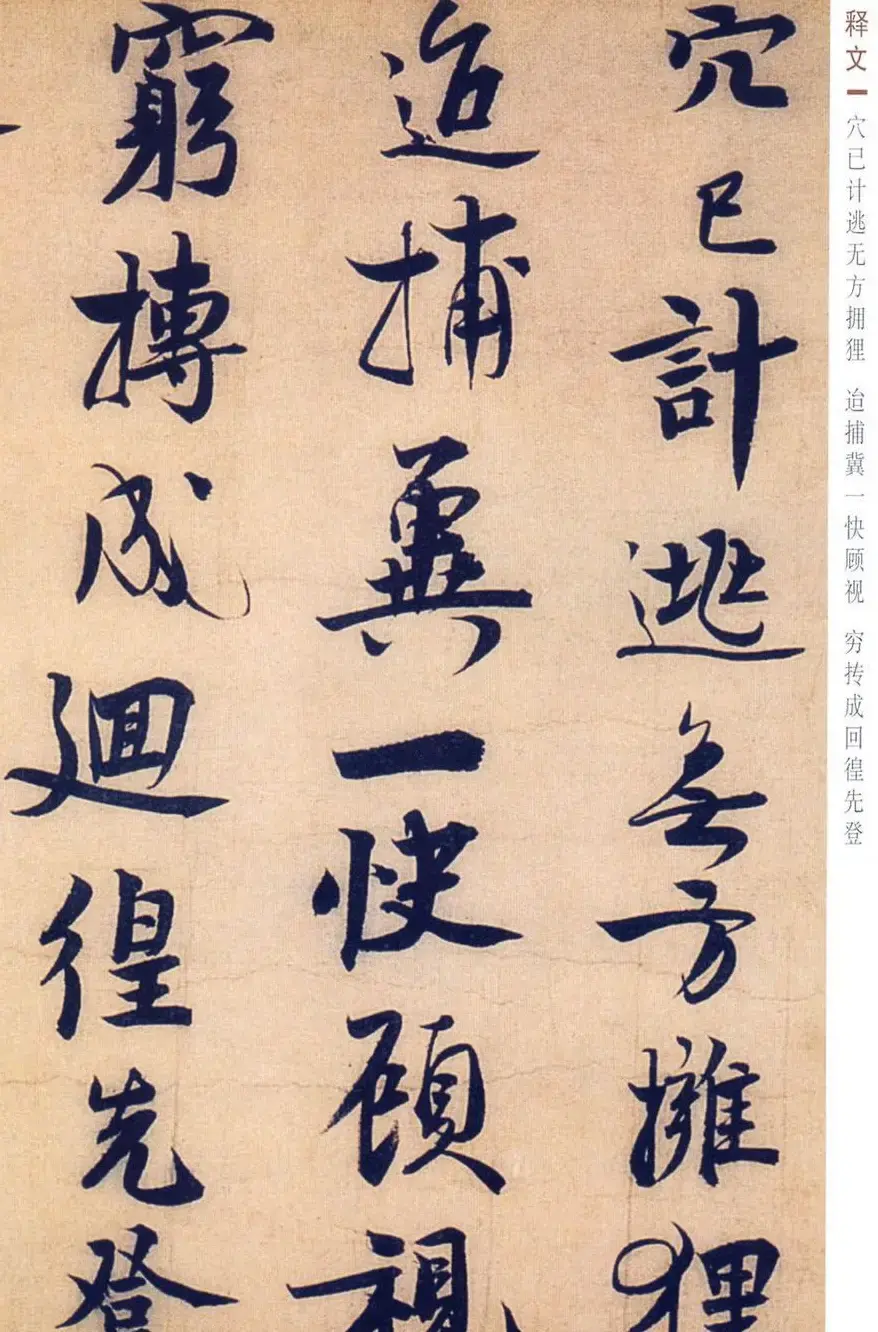 释文
穴已计逃无方拥狸 迨捕冀一快顾视 穷抟成回徨先登
穴已計逃無方擁狸
迨捕冀一快顧視
窮摶成迴徨先登